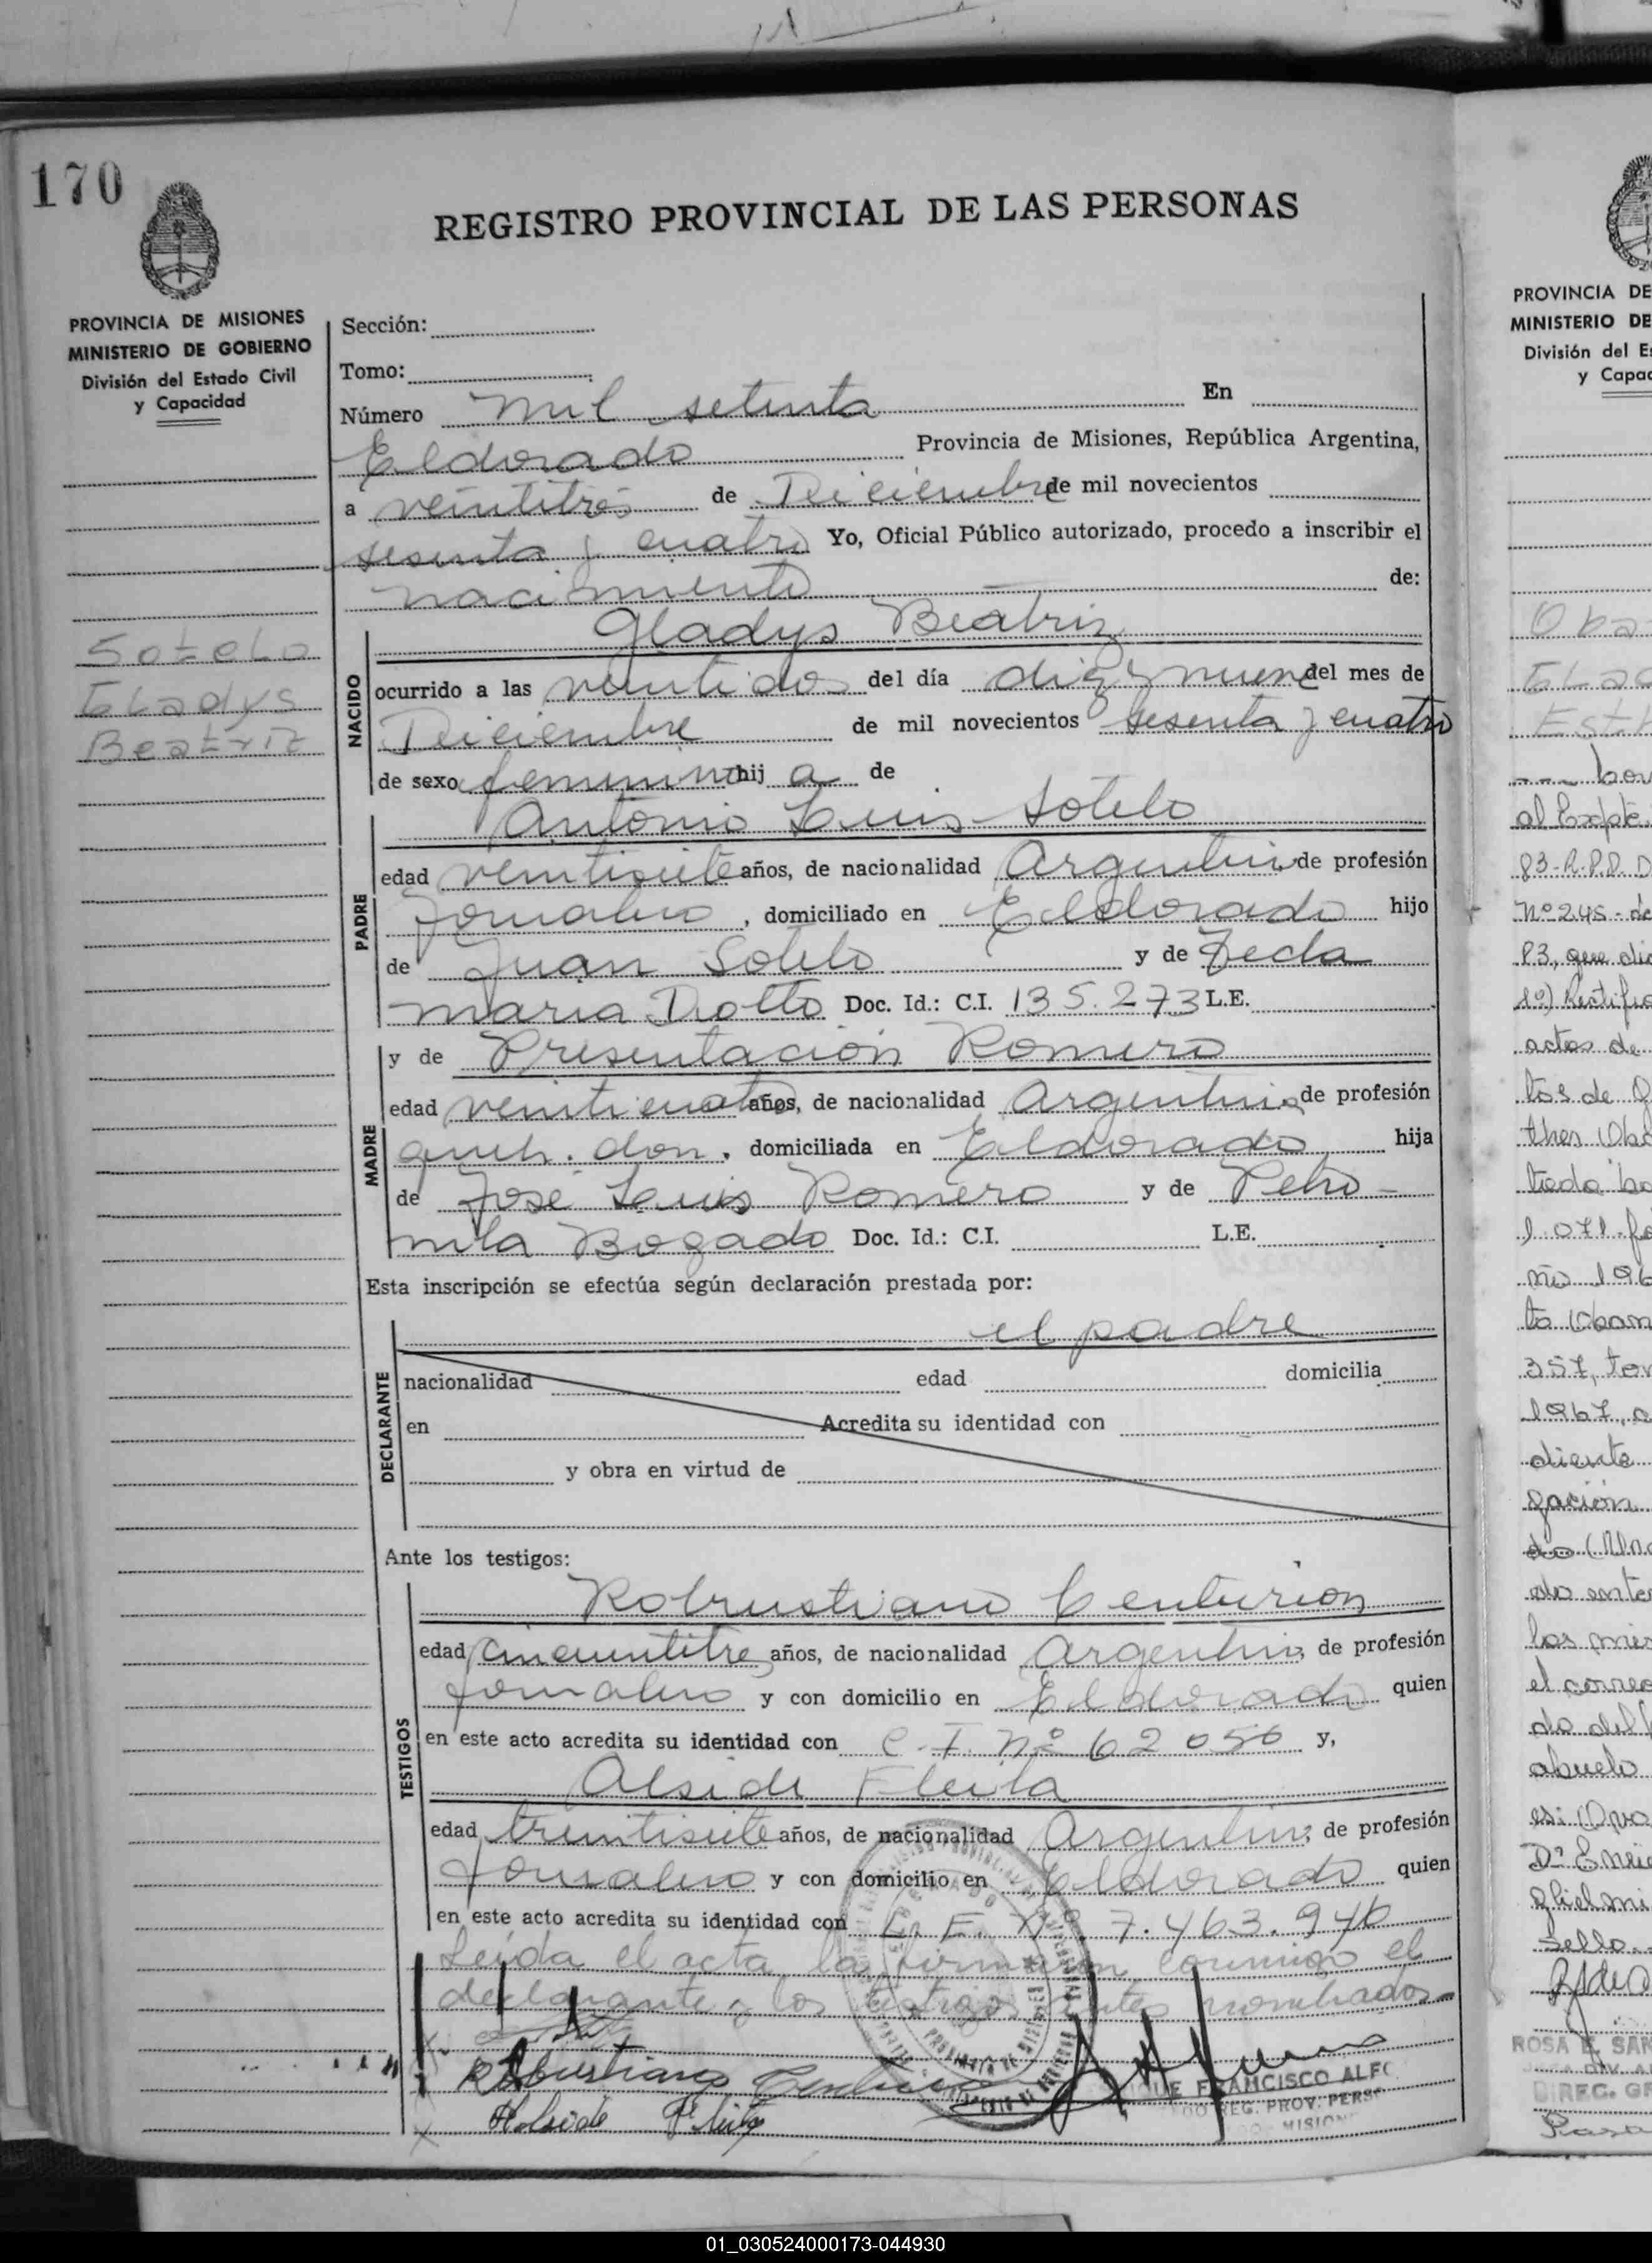 170
REGISTRO PROVINCIAL DE LAS PERSONAS
PROVINCIA DE MISIONES
MINISTERIO DE GOBIERNO
División del Estado Civil
y Capacidad
Sotelo
Gladys
Beatriz
Sección:
Tomo:
Número mil setenta En
Eldorado Provincia de Misiones, República Argentina,
a veintitrés de Diciembre de mil novecientos
sesenta y cuatro Yo, Oficial Público autorizado, procedo a inscribir el
nacimiento de:
NACIDO
Gladys Beatriz
ocurrido a las veintidos del día diez y nueve del mes de
Diciembre de mil novecientos sesenta y cuatro
de sexo femenino hij a de
PADRE
Antonio Luis Sotelo
edad veintisiete años, de nacionalidad Argentino de profesión
Jornalero, domiciliado en Eldorado hijo
de Juan Sotelo y de Tecla
Maria Dotto Doc. Id.: C.I. 135.273 L.E.
MADRE
y de Presentación Romero
edad veinticuatro años, de nacionalidad Argentina de profesión
queh. dom., domiciliada en Eldorado hija
de Jose Luis Romero y de Petro-
nila Bogado Doc. Id.: C.I. L.E.
Esta inscripción se efectúa según declaración prestada por:
DECLARANTE
el padre
nacionalidad edad domicilia
en Acredita su identidad con
y obra en virtud de
Ante los testigos:
TESTIGOS
Robustiano Centurion
edad cincuentitres años, de nacionalidad Argentino, de profesión
Jornalero y con domicilio en Eldorado quien
en este acto acredita su identidad con C.I. Nº 62050 y,
Alside Fleita
edad treintisiete años, de nacionalidad Argentino, de profesión
Jornalero y con domicilio en Eldorado quien
en este acto acredita su identidad con L.E. Nº 7.463.946
Leída el acta la firmaron conmigo el
declarante y los testigos antes nombrados
Robustiano Centurion
FRANCISCO ALFO
REG. PROV. PERS
MISION
PROVINCIA DE
MINISTERIO DE
División del Es
y Capac
al Expte.
83-R.P.P. D
Nº 245 - de
83, que dic
1º) Rectific
actas de
1.071 - fo
357, tom
1967, c
diente
el correc
do del
abuelo
Sello.
ROSA E. SAN
DIREC. GR
01_030524000173-044930